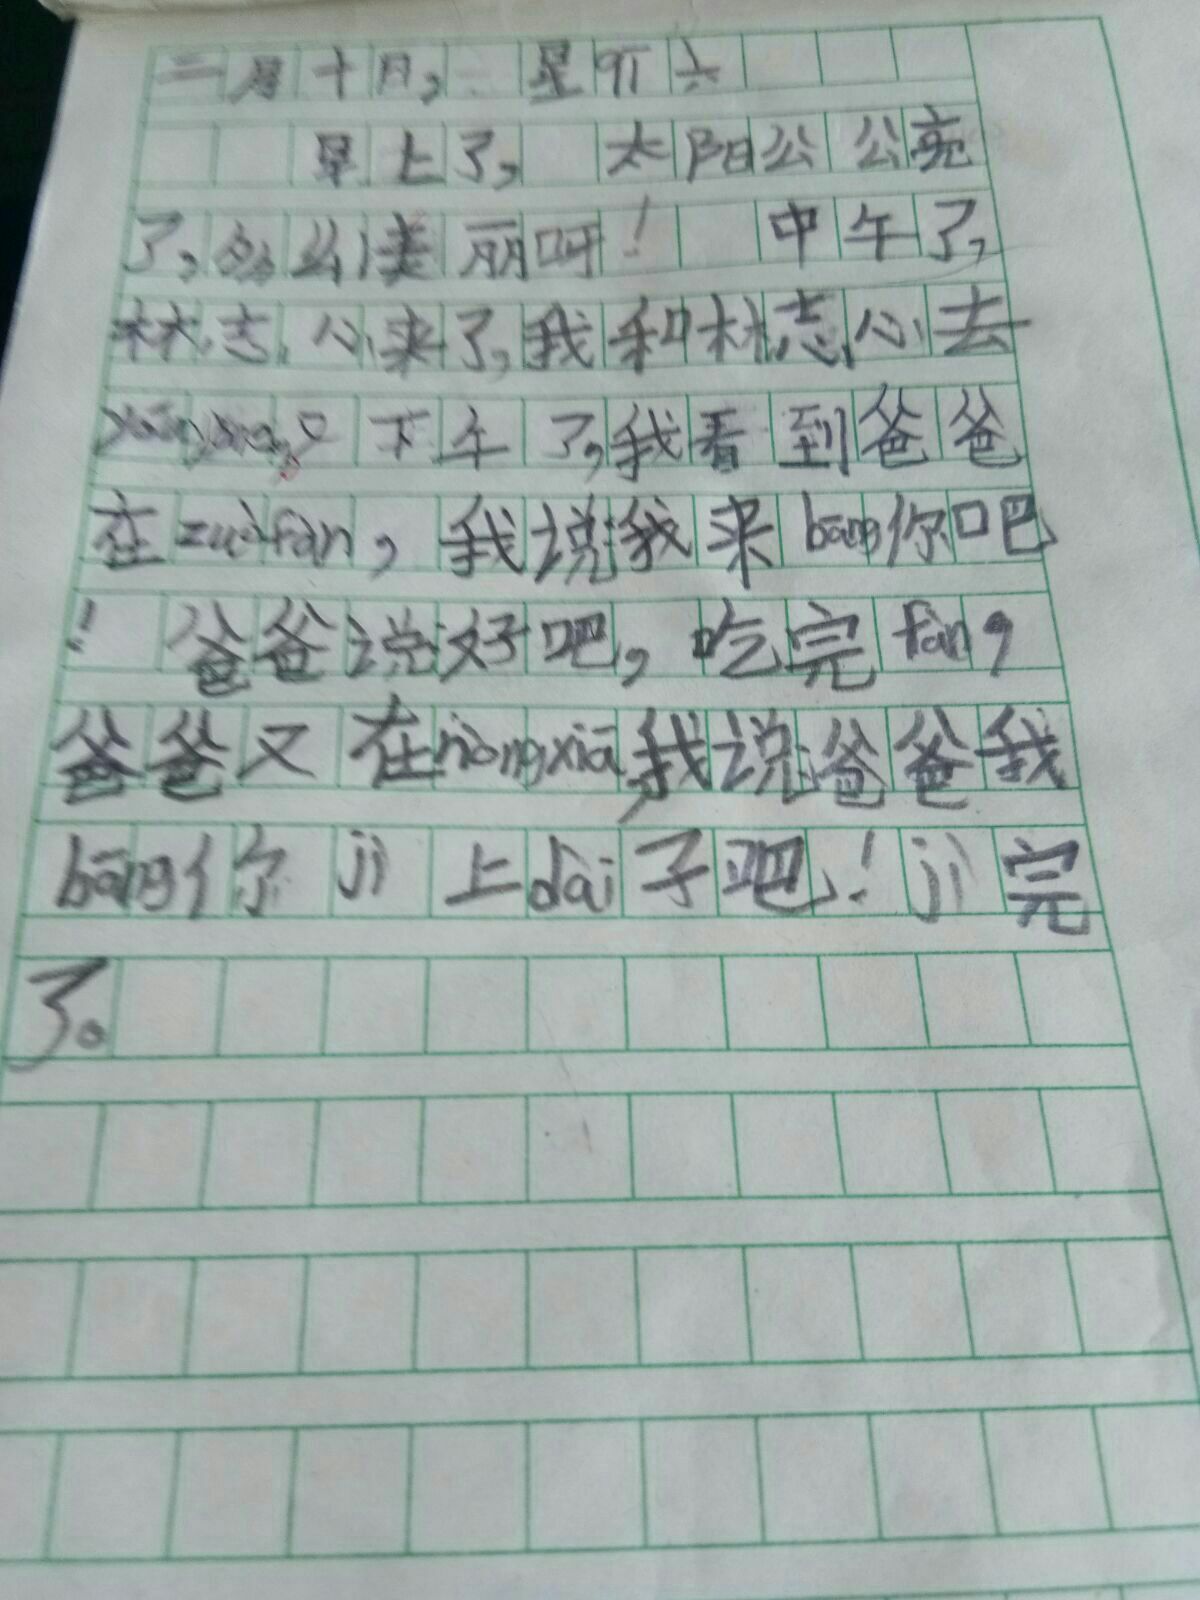 二月十月，星 六
早上了，太阳公公亮
了，多么美丽呀！中午了，
林志心来了，我和林志心去
下午了，我看到爸爸
在zuò fàn，我说我来bāng你吧
！爸爸说好吧，吃完fàn，
爸爸又在nòng xiā，我说爸爸我
bāng你jì上dài子吧！jì完
了。